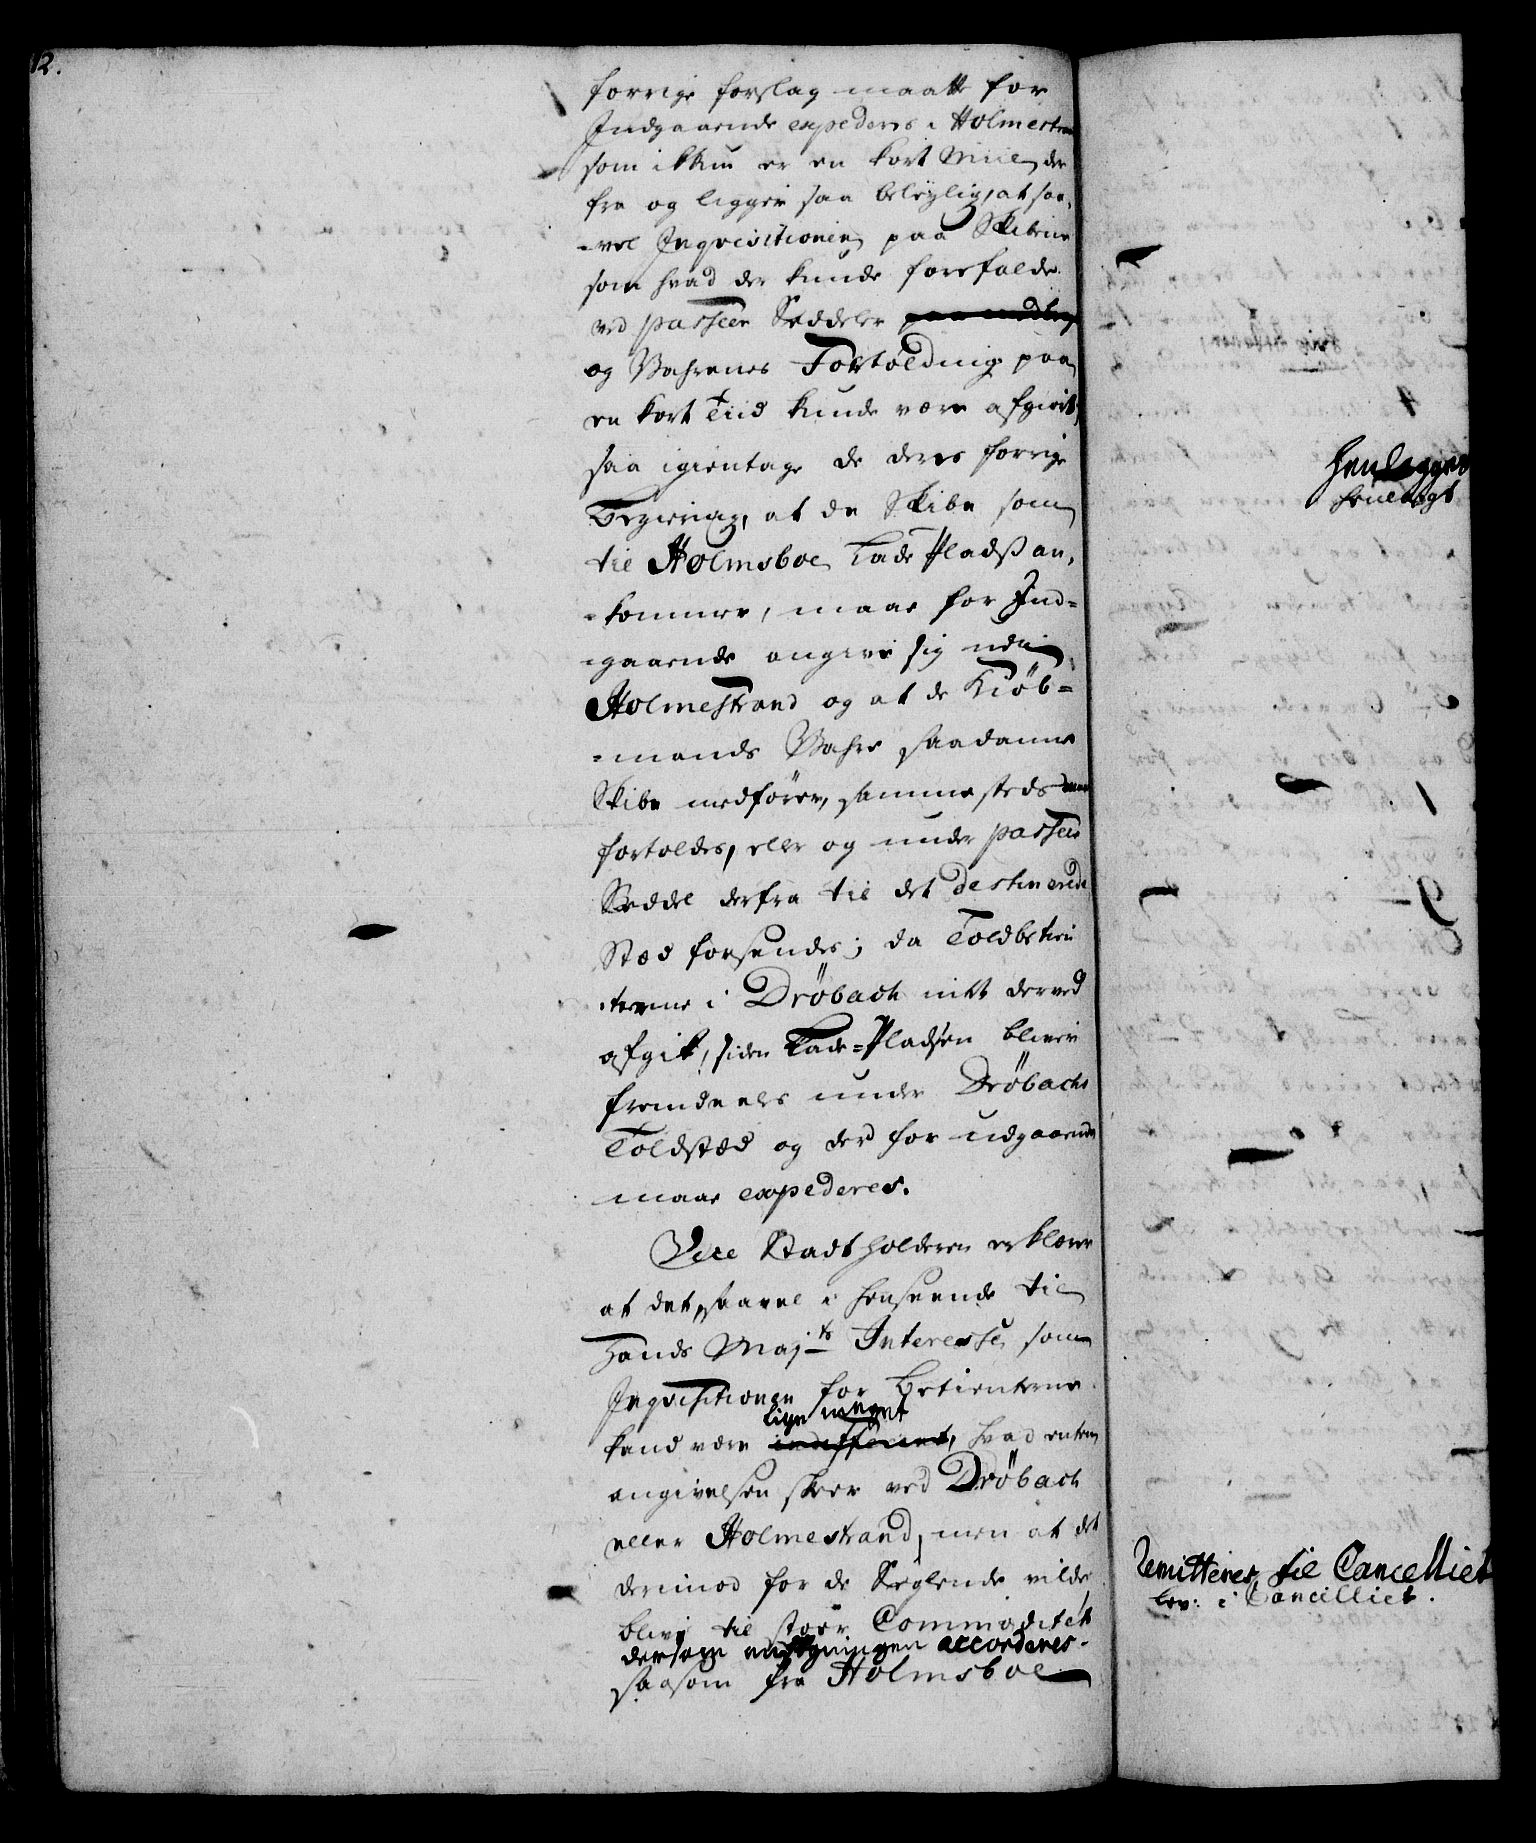 12.
forrige forslag maatte for
Indgaaende expederes i Holmestrand
som ikkun er en kort Miil der
fra og ligger saa beleylig, at saa-
-vel Inqvisitionen paa Skibene
som hvad der kunde forefalde
ved passeer Seddeler
og Vahrenes Fortoldning paa
en kort Tiid kunde være afgiort,
saa igientage de deres forrige
Begiering, at de Skibe som
til Holmsboe Lade Pladß an-
-kommer, maae for Ind-
-gaaende angive sig udi
Holmestrand og at de Kiöb-
-mands Vahre saadanne
Skibe medförer, sammesteds maa
fortoldes, eller og under passeer
Seddel derfra til det destinerede
Stæd forsendes; da Toldbetien
-terne i Dröbach intet derved
afgik, siden Lade-Pladsen bliver
fremdeeles under Dröbachs
Toldstæd og der for udgaaende
maae expederes.
Vice Stadtholderen erklærer
at det, saavel i henseende til
Hands Maj:ts Interesse, som
Inqvisitionen for Betienterne
lige meget
kand være indifferent, hvad enten
angivelsen skeer ved Dröbach
eller Holmestrand, men at det
derimod for de Seglende vilde
blive til stoer Commoditet
dersom ansögningen accorderes-
saasom fra Holmsboe
henlegges
henlagt
Remitteres til Cancelliet
lev: i Cancilliet.